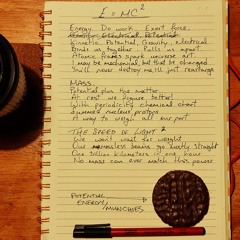 E = MC²
Energy. Do work. Exert force.
Kinetic. Potential, Gravity, electrical
Binds us together. Pulls us apart
Atomic sparks universe art
I may be mechanical, but that be changed
You'll never destroy me. I'll just rearrange
MASS.
Potential plus the matter
At rest we figure better!
With periodicity chemical chart
nucleus protons
A way to weigh all our part
THE SPEED OF LIGHT ²
We won't weight
Our brains go mostly straight
One billion kilometers in one hour
No mass can ever match this power
POTENTIAL
ENERGY
/MUNCHIES